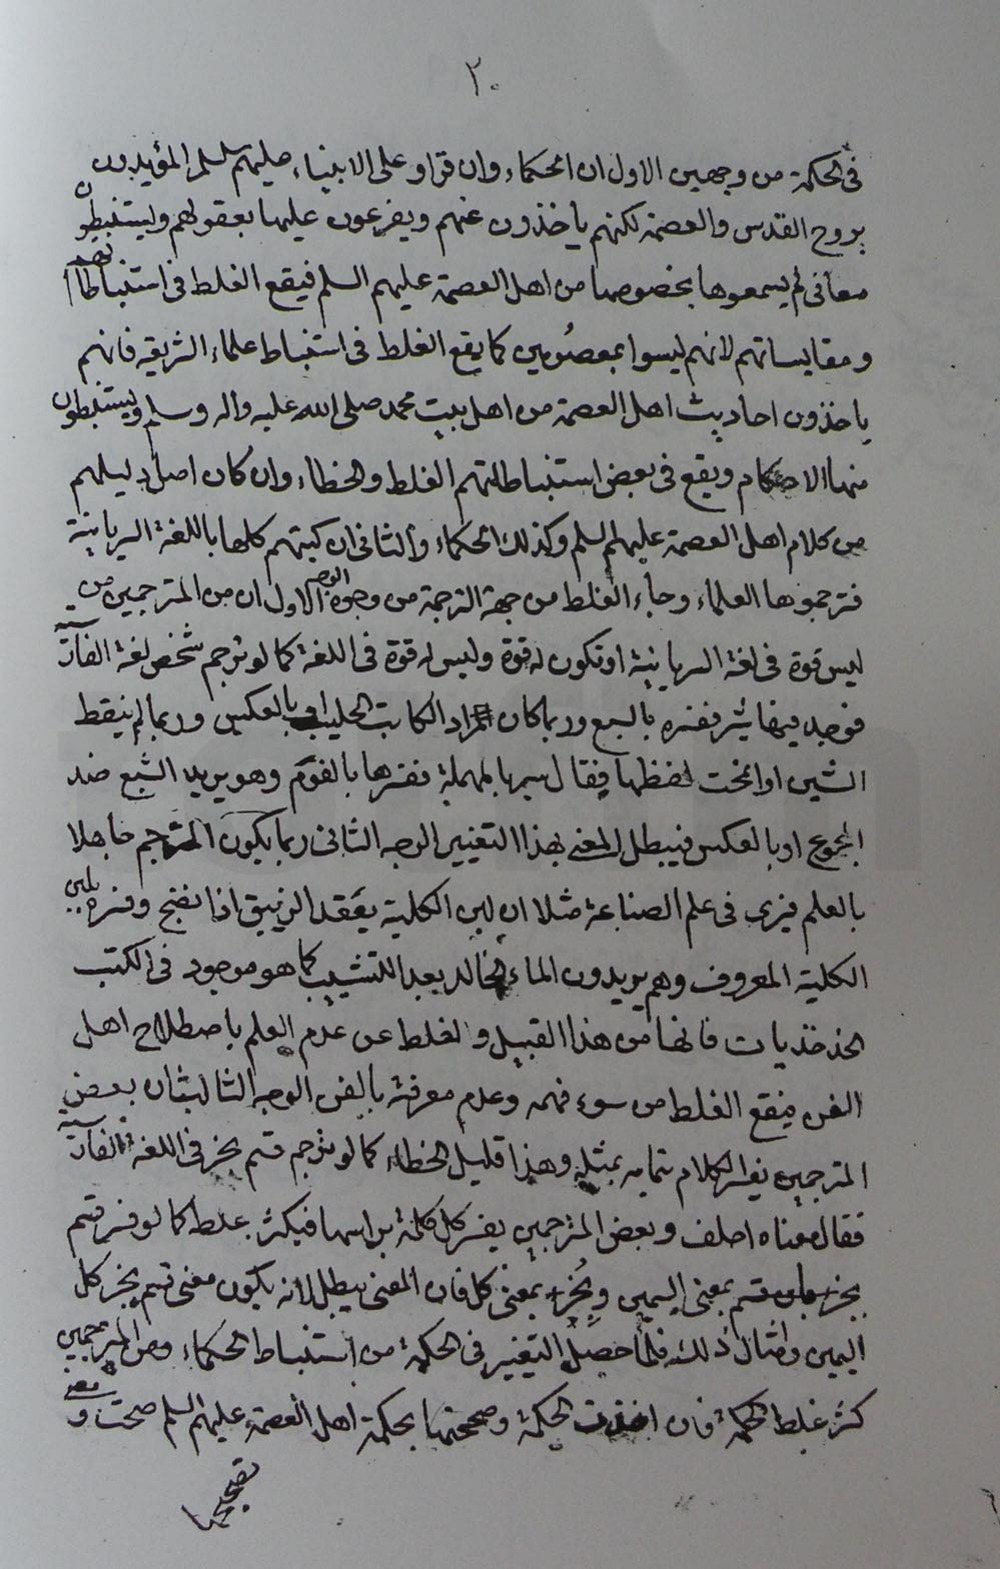 ٢٠
في الحكمة من وجهين الاول ان الحكماء وان قراوعلى الانبياء عليهم السلم المؤيدون
بروح القدس والعصمة لكنهم ياخذون عنهم ويفرعون عليها بعقولهم ويستنبطون
معانى لم يسمعوها بخصوصها من اهل العصمة عليهم السلم فيقع الغلط في استنباطاتهم
ومقايساتهم لانهم ليسوا بمعصومين كما يقع الغلط في استنباط علماء الشريعة فانهم
ياخذون احاديث اهل العصمة من اهل بيت محمد صلى الله عليه واله وسلم ويستنبطون
منها الاحكام ويقع في بعض استنباطاتهم الغلط والخطاء وان كان اصل دليلهم
من كلام اهل العصمة عليهم السلم وكذلك الحكماء والثانى ان كتبهم كلها باللغة السريانية
فترجموها العلماء وجاء الغلط من جهة الترجمة من وجوه الوجه الاول ان من المترجمين من
ليس قوة في لغة السريانية او تكون له قوة وليس له قوة في اللغة كما لو ترجم شخص لغة الفارسية
فوجد فيها شير ففسره بالسبع وربما كان المراد الكاتب الحليب او بالعكس وربما لم ينقط
الشين او انمحت لفظها فقال سير بالمهملة ففسرها بالفوم وهو يريد الشبع ضد
الجوع او بالعكس فيبطل المعنى بهذا التغيير الوجه الثانى ربما يكون المترجم جاهلا
بالعلم فيرى في علم الصناعة مثلا ان لبن الكلبة يعقد الزيبق اذا نضج وفسره بلبن
الكلبة المعروف وهم يريدون الماء الخالد بعد التشبيب كما هو موجود في الكتب
فانها من هذا القبيل والغلط عن عدم العلم باصطلاح اهل
الفن فيقع الغلط من سوء فهمه وعدم معرفته بالفن الوجه الثالث ان بعض
المترجمين يفسر الكلام بتمامه بمثله وهذا قليل الخطاء كما لو ترجم قسم بخر في اللغة الفارسية
فقال معناه احلف وبعض المترجمين يفسر كل كلمة براسها فيكثر غلطه كما لو فسر قسم
بخر بان قسم بمعنى اليمين وبخر بمعنى كل فان المعنى يبطل لانه يكون معنى قسم بخر كل
اليمين وامثال ذلك فلما حصل التغيير في الحكمة من استنباط الحكماء ومن المترجمين
كثر غلط الحكمة فان اخذت الحكمة وصححتها بحكمة اهل العصمة عليهم السلم صحت ومعنى
تصحيحها